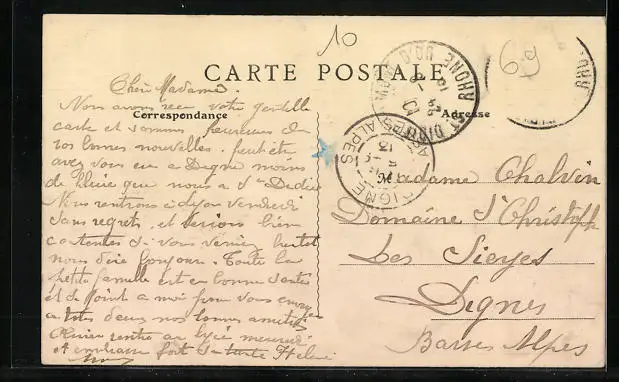 10
69
CARTE POSTALE
Correspondance
Adresse
RHONE
DIGNE
Chère Madame.
Nous avons reçu votre gentille
carte et sommes heureuses de
vos bonnes nouvelles. peut être
avez vous eu a Digne moins
de pluie que nous a St Didier
Nous rentrons à Lyon vendredi
sans regrets, et serions bien
contentes si vous veniez bientot
nous dire bonjour. Toute la
petite famille est en bonne santé
et se joint a moi pour vous envoyer
a tous deux nos bonnes amitiés
rentre au lycée mercredi
et embrasse fort sa tante Hélène
Madame Chalvin
Domaine St Christophe
Les Sieyes
Digne
Basses Alpes